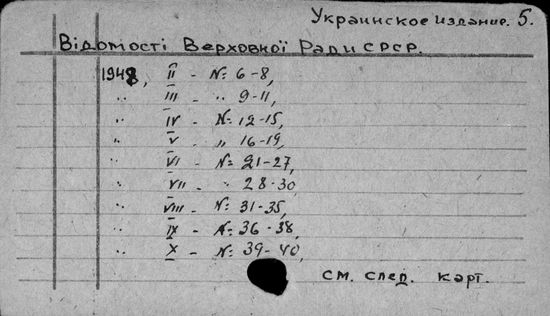 Украинское издание. 5.
Відомості Верховної Ради СРСР.
1948, II - №: 6-8,
" III - " 9-11,
" IV - №: 12-15,
" V - " 16-19,
" VI - №: 21-27,
" VII - " 28-30,
" VIII - №: 31-35,
" IX - №: 36-38,
" X - №: 39-40,
см. след. карт.